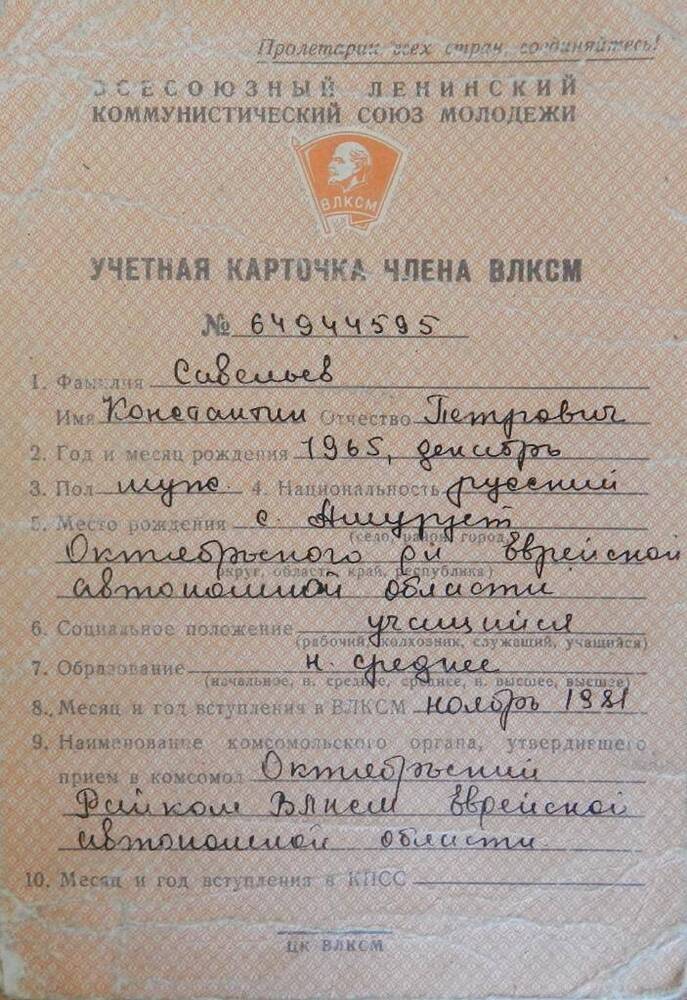 Пролетарии всех стран, соединяйтесь!
ВСЕСОЮЗНЫЙ ЛЕНИНСКИЙ
КОММУНИСТИЧЕСКИЙ СОЮЗ МОЛОДЕЖИ
ВЛКСМ
УЧЕТНАЯ КАРТОЧКА ЧЛЕНА ВЛКСМ
№ 64944595
1. Фамилия Савельев
Имя Константин Отчество Петрович
2. Год и месяц рождения 1965, декабрь
3. Пол муж. 4. Национальность русский
5. Место рождения с. Амурзет
(село, район, город,
Октябрьского р-н Еврейской
округ, область, край, республика)
автономной области
6. Социальное положение учащийся
(рабочий, колхозник, служащий, учащийся)
7. Образование н. среднее
(начальное, н. среднее, среднее, н. высшее, высшее)
8. Месяц и год вступления в ВЛКСМ ноябрь 1981
9. Наименование комсомольского органа, утвердившего
прием в комсомол Октябрьский
Райком ВЛКСМ Еврейской
автономной области
10. Месяц и год вступления в КПСС
ЦК ВЛКСМ